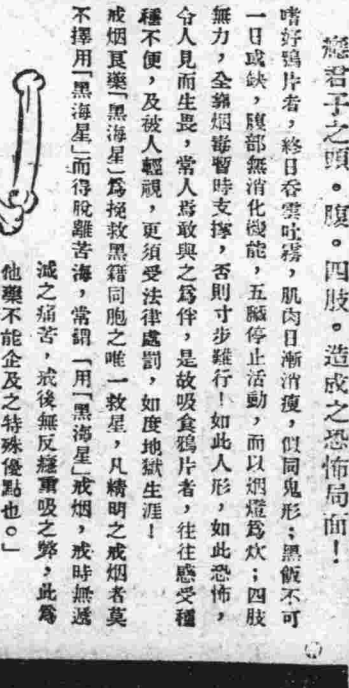 癮君子之頭。腹。四肢。造成之恐怖局面！
嗜好鴉片者，終日吞雲吐霧，肌肉日漸消瘦，似同鬼形；黑飯不可
一日或缺，腹部無消化機能，五臟停止活動，而以烟燈爲炊；四肢
無力，全靠烟毒暫時支撑，否則寸步難行！如此人形，如此恐怖，
令人見而生畏，常人焉敢與之爲伴，是故吸食鴉片者，往往感受種
種不便，及被人輕視，更須受法律處罰，如度地獄生涯！
戒烟良藥「黑海星」爲挽救黑籍同胞之唯一救星，凡精明之戒烟者莫
不擇用「黑海星」而得脫離苦海，常謂「用「黑海星」戒烟，戒時無遞
減之痛苦，戒後無反癮重吸之弊，此爲
他藥不能企及之特殊優點也。」